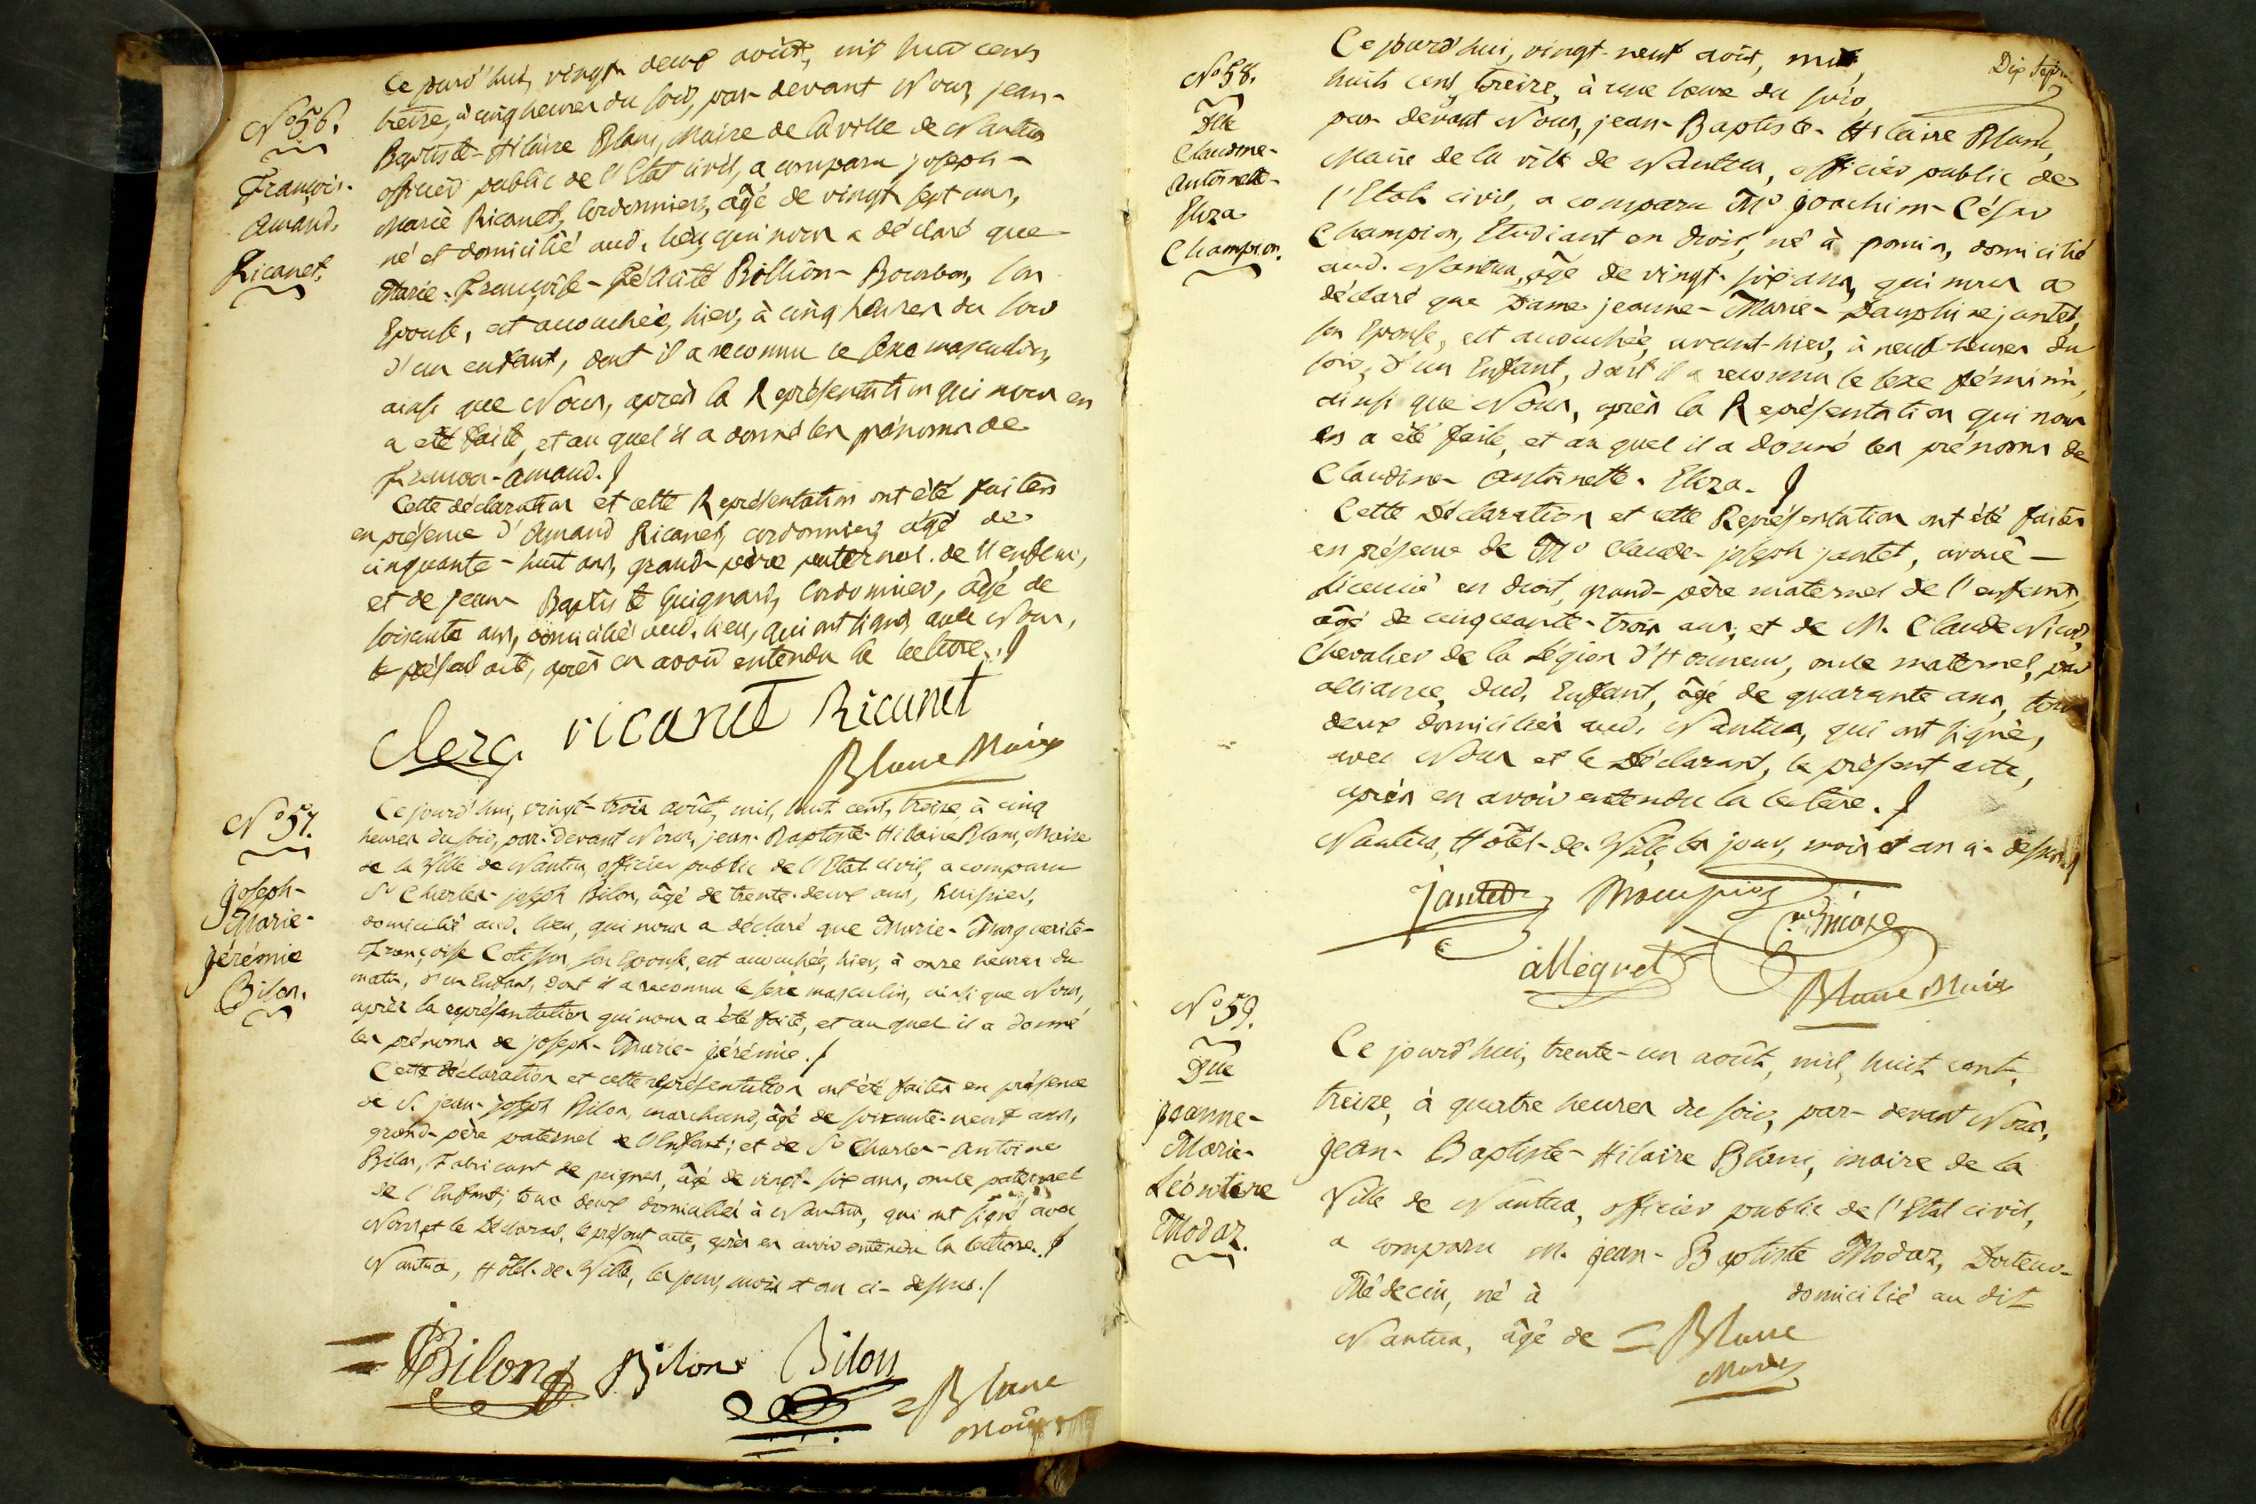 N.º 56.
François-
Amand.
Ricanet.
Ce jourd'hui, vingt deux août, mil huit cents
treize, à cinq heures du soir, par-devant Nous, jean-
Baptiste-Hilaire Blanc, Maire de la ville de Nantua
officier public de l'Etat civil, a comparu joseph-
Marie Ricanet, Cordonnier, âgé de vingt sept ans,
né et domicilié aud. lieu, qui nous a déclaré que
Marie-Françoise-Félicité Billion-Bourbon, son
Epouse, est accouchée, hier, à cinq heures du soir
d'un enfant, dont il a reconnu le sexe masculin,
ainsi que Nous, après la Représentation qui nous en
a été faite, et au quel il a donné les prénoms de
François-Amand.
Cette déclaration et cette Représentation ont été faites
en présence d'Amand Ricanet, cordonnier, âgé de
cinquante-huit ans, grand-père paternel de l'enfant,
et de jean Baptiste Guignard, Cordonnier, âgé de
soixante ans, domiciliés aud. lieu, qui ont signé avec Nous,
le présent acte, après en avoir entendu la lecture.
Clerc ricanet Ricanet
Blanc Maire
N.º 57.
joseph-
Marie-
jérémie
Bilon.
Ce jourd'hui, vingt-trois août, mil, huit cent, treize, à cinq
heures du soir, par-devant Nous, jean-Baptiste-Hilaire Blanc, Maire
de la Ville de Nantua officier public de l'Etat civil, a comparu
Sr Charles-joseph Bilon, âgé de trente-deux ans, huissier,
domicilié aud. lieu, qui nous a déclaré que Marie-Marguerite-
Françoise son Epouse, est accouchée, hier, à onze heures du
matin, d'un Enfant, dont il a reconnu le sexe masculin, ainsi que Nous,
après la représentation qui nous a été faite, et au quel il a donné
les prénoms de joseph-Marie-jérémie.
Cette déclaration et cette représentation ont été faites en présence
de S. jean-joseph Bilon, marchand, âgé de soixante-neuf ans,
grand-père paternel de l'Enfant; et de Sr Charles-Antoine
Bilon, Fabricant de peignes, âgé de vingt-six ans, oncle paternel
de l'Enfant; tous deux domiciliés à Nantua, qui ont signé avec
Nous et le Déclarant, le présent acte, après en avoir entendu la lecture.
Nantua, Hôtel-de-Ville, les jour, mois et an ci-dessus.
Bilon Bilon Bilon
Blanc
Maire
Dix sept
N.º 58.
Dlle
Claudine-
Antoinette-
Eliza
Champion.
Ce jourd'hui, vingt-neuf août, mil,
huit cent, treize, à une heure du soir,
par-devant Nous, jean-Baptiste-Hilaire Blanc,
Maire de la ville de Nantua, officier public de
l'Etat civil, a comparu Mr joachim-César
Champion, Etudiant en droit, né à domicilié
aud. Nantua, âgé de vingt-six ans, qui nous a
déclaré que Dame jeanne-Marie-Dauphine jantet,
son Epouse, est accouchée, avant-hier, à neuf heures du
soir, d'un Enfant, dont il a reconnu le sexe féminin,
ainsi que Nous, après la Représentation qui nous
en a été faite, et au quel il a donné les prénoms de
Claudine Antoinette-Eliza.
Cette Déclaration et cette Représentation ont été faites
en présence de Mr Claude-joseph jantet, avoué-
Licencié en droit, grand-père maternel de l'enfant,
âgé de cinquante-trois ans, et de M. Claude
Chevalier de la Légion d'Honneur, oncle maternel, par
alliance, dud. Enfant, âgé de quarante ans, tous
deux domiciliés aud. Nantua, qui ont signé,
avec Nous et le Déclarant, le présent acte,
après en avoir entendu la lecture.
Nantua, Hôtel-de-Ville, les jour, mois et an ci-dessus
jantet Champion
allegret
Blanc Maire
N.º 59.
Dlle
jeanne-
Marie-
Léontine
Modaz.
Ce jourd'hui, trente-un août, mil, huit cent,
treize, à quatre heures du soir, par-devant Nous,
jean-Baptiste-Hilaire Blanc, maire de la
Ville de Nantua, officier public de l'Etat civil,
a comparu M. jean-Baptiste Modaz, Docteur-
Médecin, né à domicilié au dit
Nantua, âgé de = Blanc
Maire